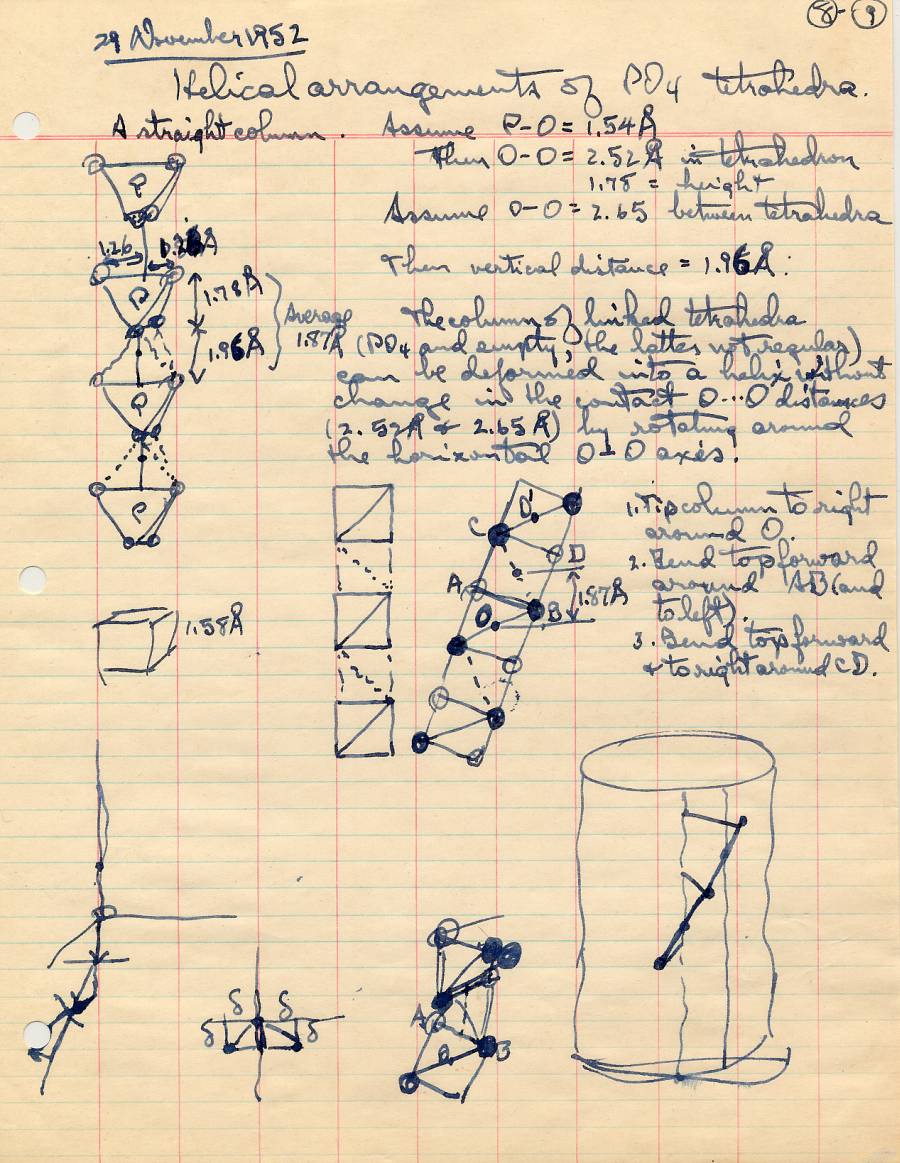 8-9
29 November 1952
Helical arrangements of PO4 tetrahedra.
A straight column. Assume P-O = 1.54Å
Then O-O = 2.52Å in tetrahedron
1.78 = height
Assume O-O = 2.65 between tetrahedra
Then vertical distance = 1.96Å.
P
1.26
P
1.78Å
1.96Å
Average
1.87Å
P
P
The column of linked tetrahedra
(PO4 and empty, the latter not regular)
can be deformed into a helix without
change in the contact O---O distances
(2.52Å & 2.65Å) by rotating around
the horizontal O⊥O axes.
C
D'
D
A
O
B
1.87Å
1. Tip column to right
around O.
2. Bend top forward
around AB (and
to left).
3. Bend top forward
& to right around CD.
1.58Å
δ δ
δ δ
A
B